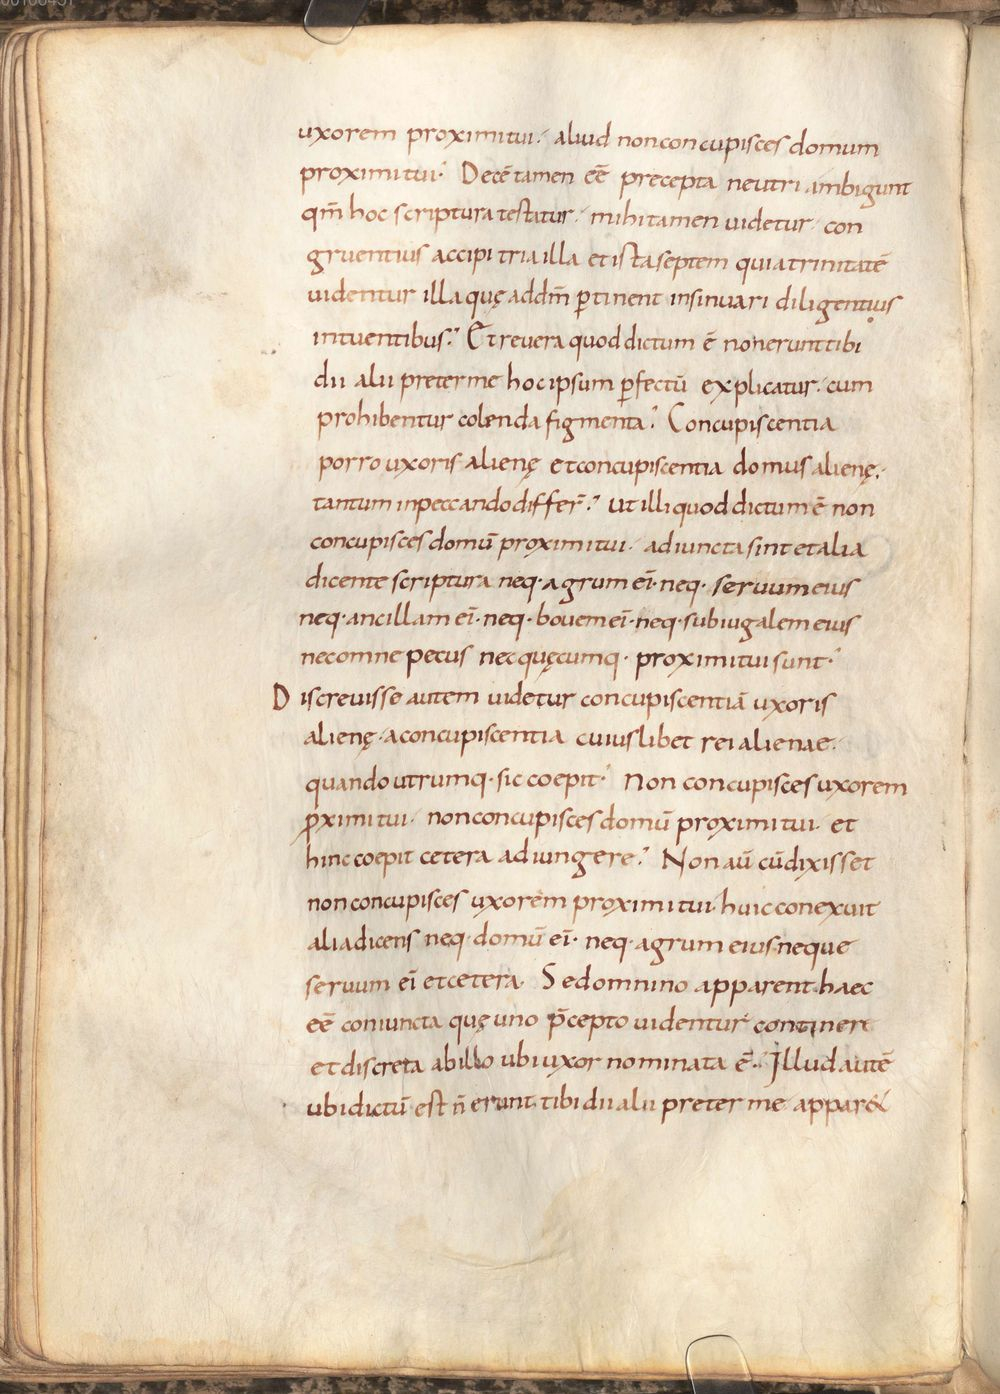 uxorem proximi tui· aliud non concupisces domum
proximi tui· Decē tamen eē precepta neutri ambigunt
qm̄ hoc scriptura testatur· mihi tamen uidetur con
gruentius accipi tria illa et ista septem quia trinitatē
uidentur illa quę ad dm̄ ꝑtinent insinuari diligentius
intuentibus· Et reuera quod dictum ē non erunt tibi
dii alii preter me hoc ipsum ꝑfectū explicatur· cum
prohibentur colenda figmenta· Concupiscentia
porro uxoris alienę et concupiscentia domus alienę·
tantum in peccando differ̄· Ut illi quod dictum ē non
concupisces domū proximi tui· adiuncta sint et alia
dicente scriptura neq· agrum eī· neq· seruum eius
neq· ancillam eī· neq· bouem eī· neq· subiugalem eius
nec omne pecus nec quęcumq· proximi tui sunt·
Discreuisse autem uidetur concupiscentiā uxoris
alienę· a concupiscentia cuiuslibet rei alienae·
quando utrumq· sic coepit· Non concupisces uxorem
ꝓximi tui· non concupisces domū proximi tui· et
hinc coepit cetera adiungere· Non aū cū dixisset
non concupisces uxorem proximi tui· huic conexuit
alia dicens neq· domū eī· neq· agrum eius neque
seruum eī et cetera· Sed omnino apparent haec
eē coniuncta quę uno p̄cepto uidentur continere
et discreta ab illo ubi uxor nominata ē· Illud autē
ubi dictū est n̄ erunt tibi dii alii preter me appar&